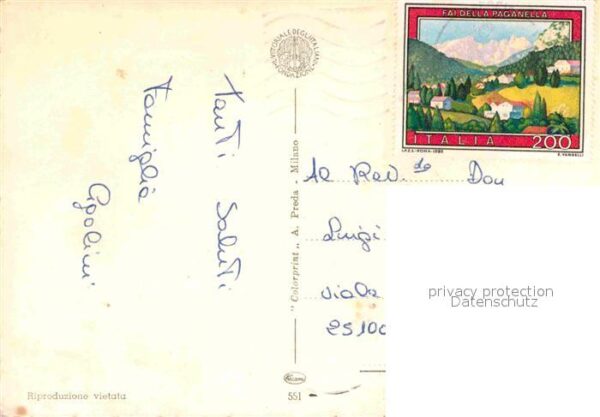 FAI DELLA PAGANELLA
ITALIA 200
I.P.Z.S.-ROMA-1980
E. VANGELLI
VITTORIALE DEGLI ITALIANI
FONDAZIONE
Tanti Saluti
Famiglia
"Colorprint" A. Preda - Milano
Al Rev.do Don
Luigi
Viale
25100
privacy protection
Datenschutz
Riproduzione vietata
551